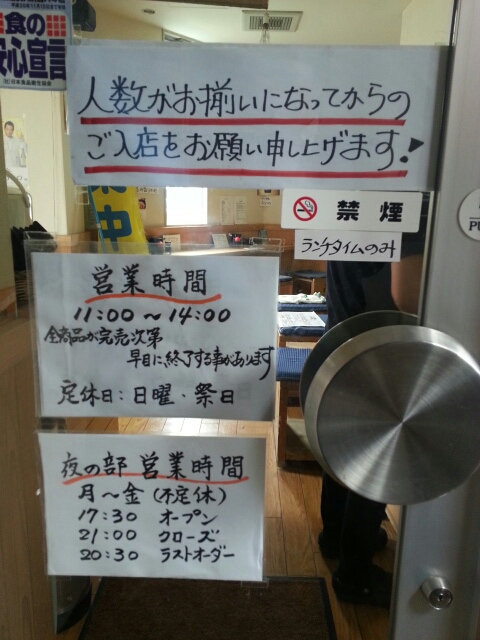 食の
安心宣言
人数がお揃いになってからの
ご入店をお願い申し上げます!
禁煙
ランチタイムのみ
営業時間
11:00〜14:00
全商品が完売次第
早目に終了する事があります
定休日:日曜・祭日
夜の部 営業時間
月〜金(不定休)
17:30 オープン
21:00 クローズ
20:30 ラストオーダー